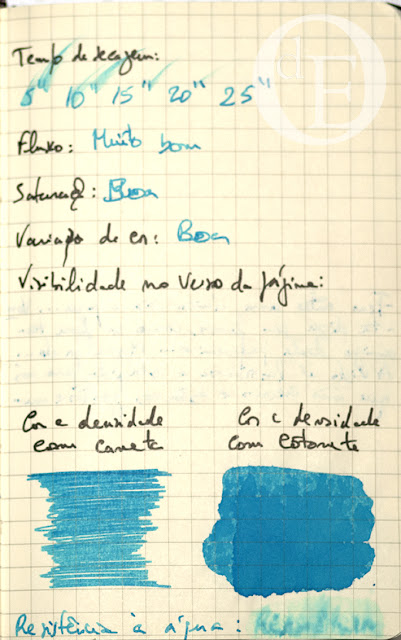 Tempo de secagem:
5" 10" 15" 20" 25"
Fluxo: Muito bom
Saturação: Boa
Variação de cor: Boa
Visibilidade no verso da página:
Cor e densidade com caneta
Cor e densidade com cotonete
Resistência à água: